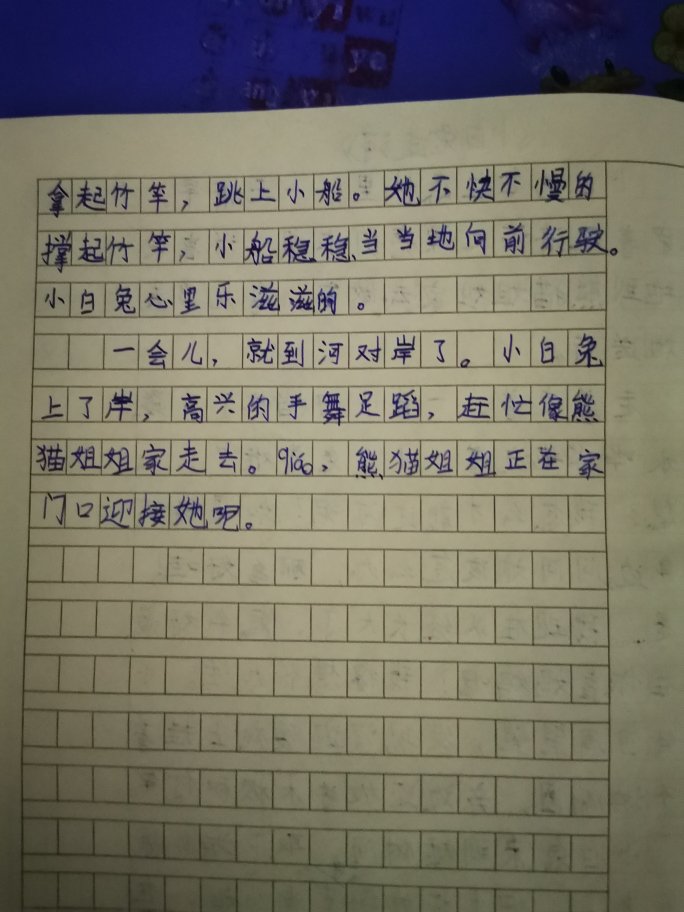 拿起竹竿，跳上小船。她不快不慢的
撑起竹竿，小船稳稳当当地向前行驶。
小白兔心里乐滋滋的。
一会儿，就到河对岸了。小白兔
上了岸，高兴的手舞足蹈，赶忙像熊
猫姐姐家走去。qiao，熊猫姐姐正在家
门口迎接她呢。